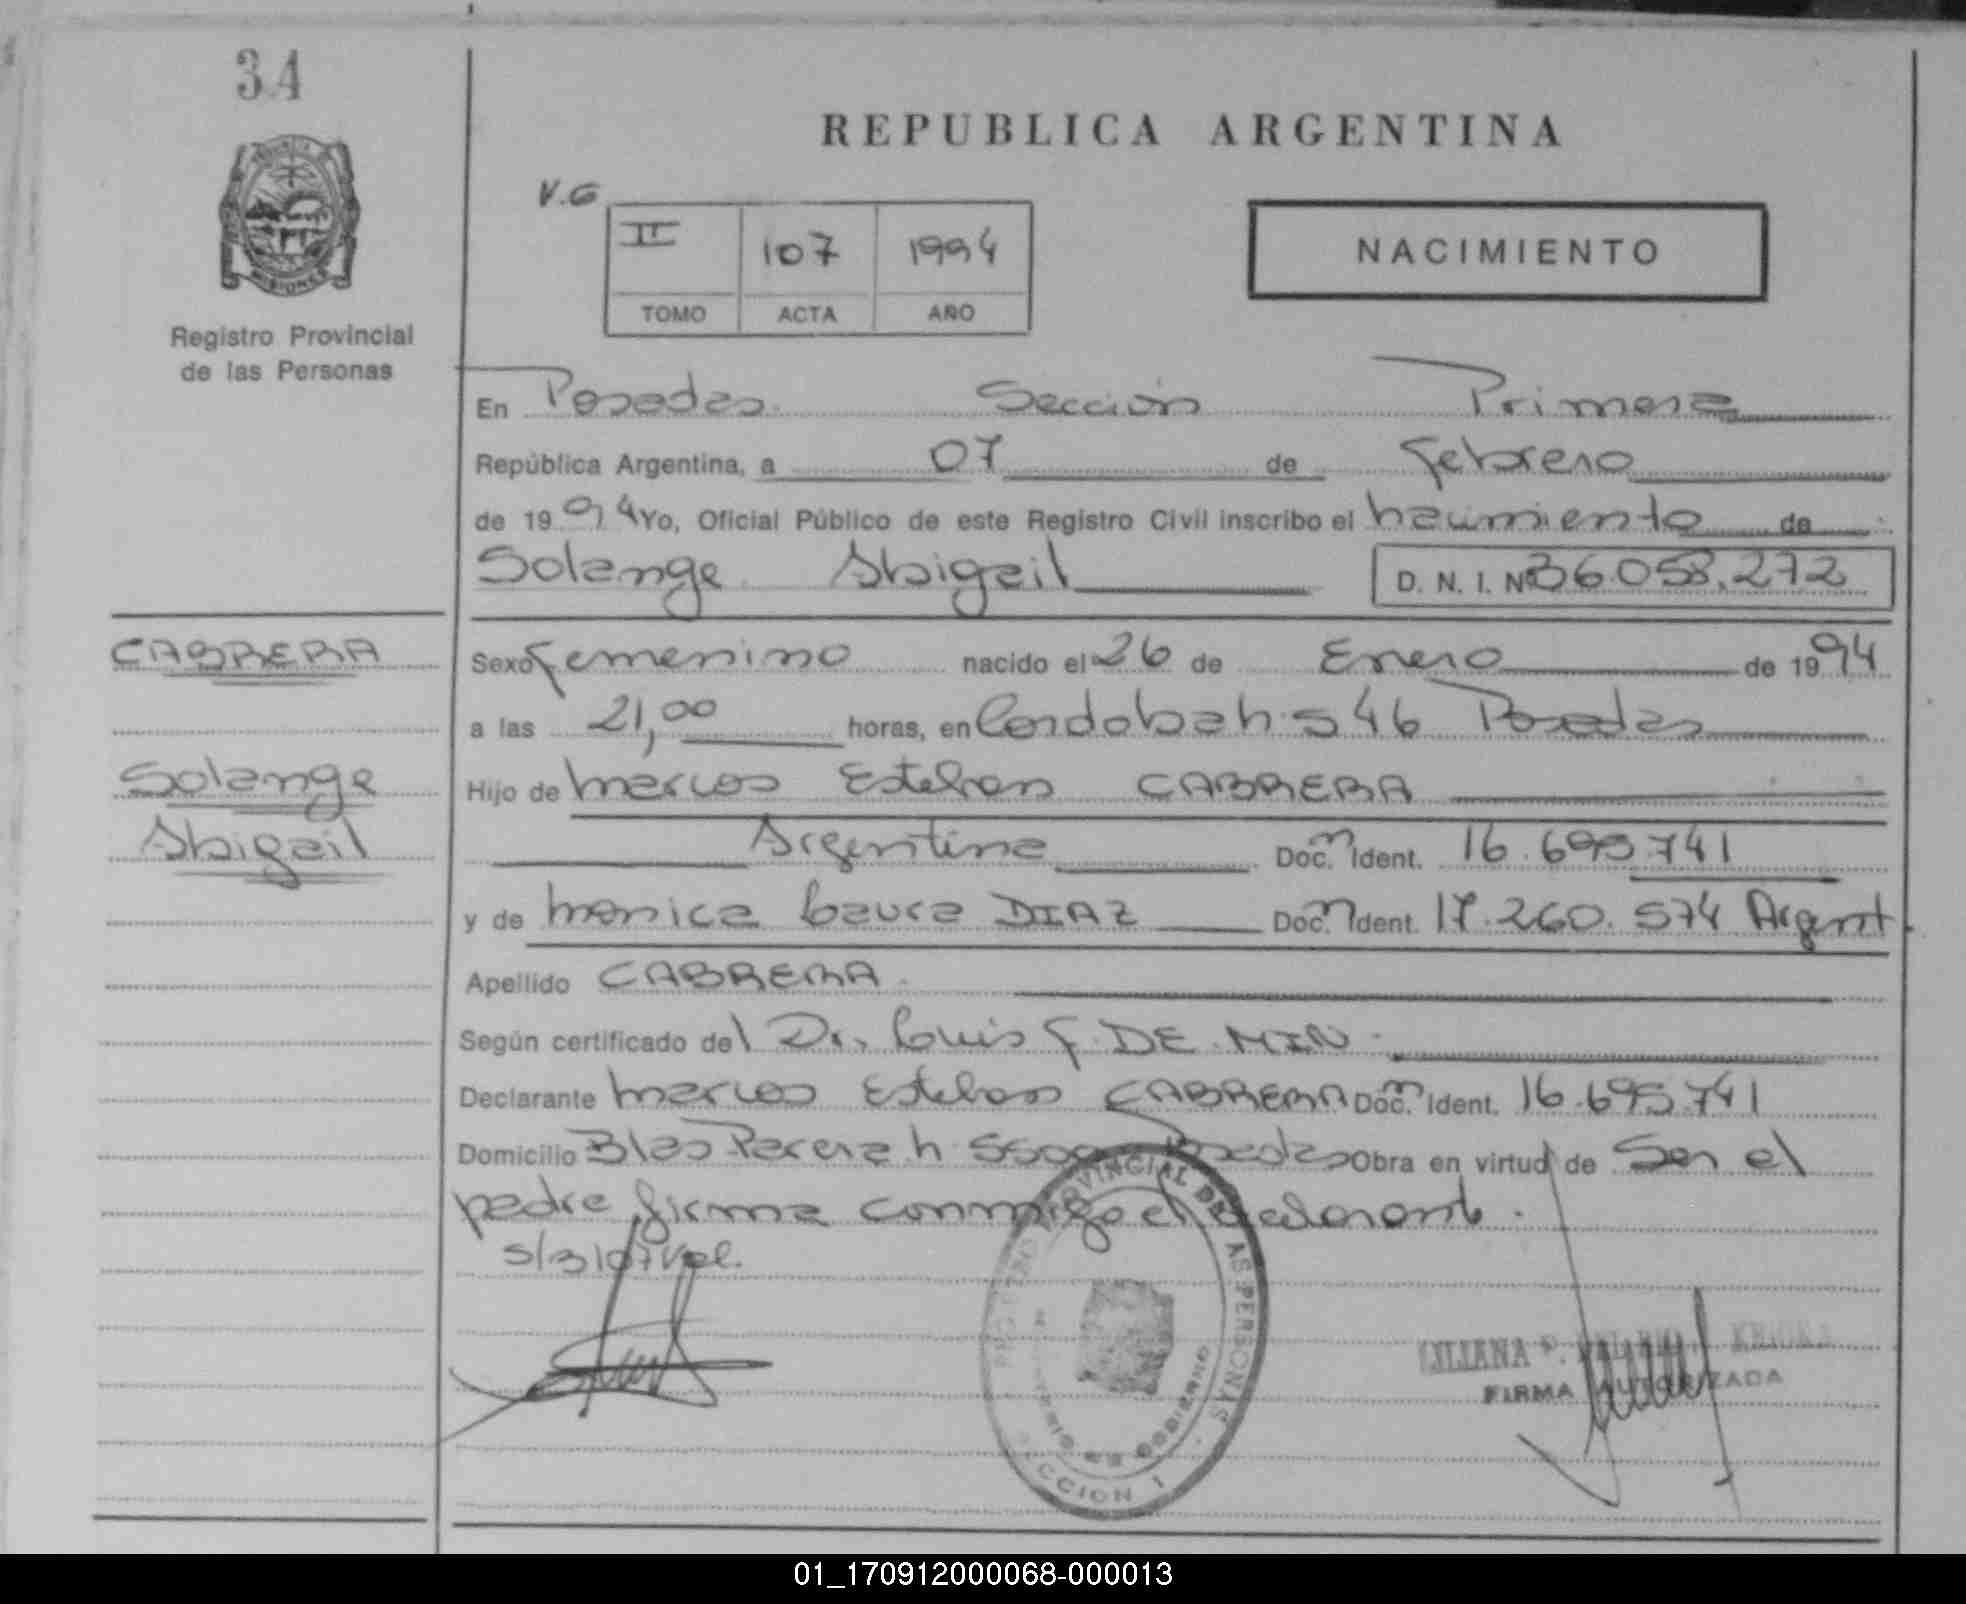 34
REPUBLICA ARGENTINA
V.G
II 107 1994
TOMO ACTA AÑO
NACIMIENTO
MISIONES
Registro Provincial
de las Personas
En Posadas Sección Primera
República Argentina, a 07 de febrero
de 1994 Yo, Oficial Público de este Registro Civil inscribo el nacimiento de
Solange Abigail D. N. I. Nº 36.058.272
CABRERA
Sexo femenino nacido el 26 de Enero de 1994
a las 21,00 horas, en Cordoba n. 546 Posadas
Solange
Abigail
Hijo de Marcos Esteban CABRERA
Argentina Doc. n Ident. 16.695.741
y de Monica Laura DIAZ Doc. n Ident. 17.260.574 Argent.
Apellido CABRERA
Según certificado del Dr. Luis F. DE MIN
Declarante Marcos Esteban CABRERA Doc. n Ident. 16.695.741
Domicilio Blas Parera n Posadas Obra en virtud de Ser el
padre firma conmigo el declarante.
REGISTRO PROVINCIAL DE LAS PERSONAS
MINISTERIO DE GOBIERNO
SECCION 1
LILIANA P.
FIRMA AUTORIZADA
01_170912000068-000013